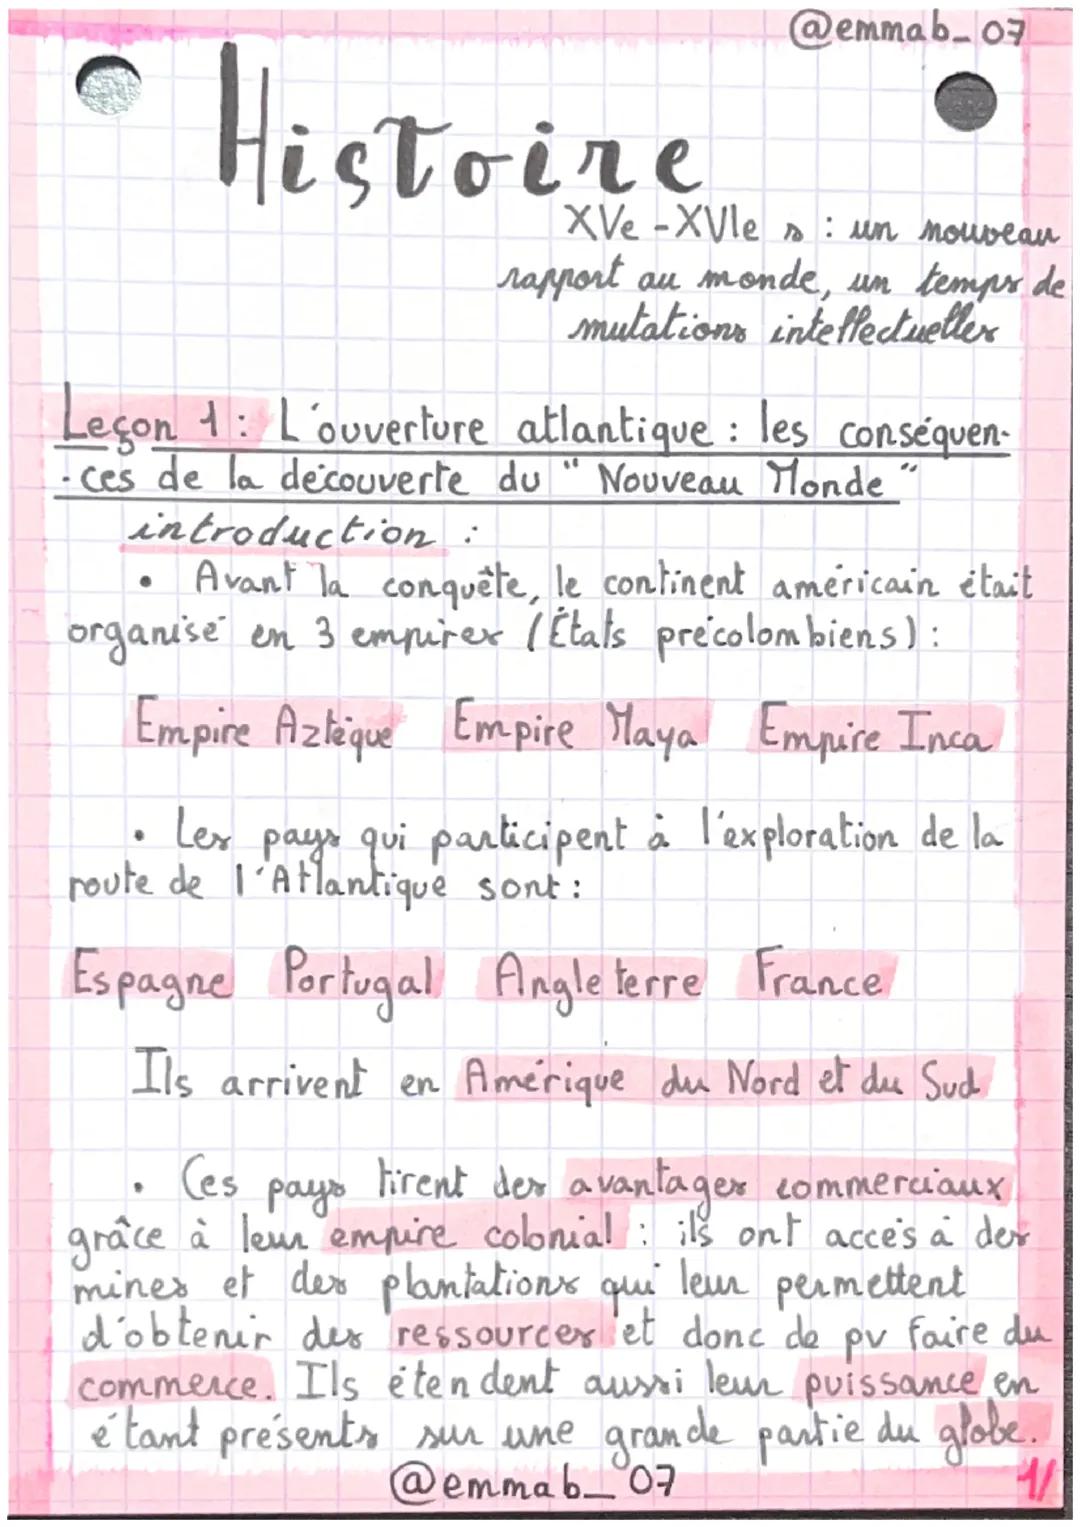 @emmab_07
Histoire
XVe - XVIe s : un nouveau
rapport au monde, un temps de
mutations intellectuelles
Leçon 1 : L'ouverture atlantique : les conséquen-
-ces de la découverte du "Nouveau Monde"
introduction :
• Avant la conquête, le continent américain était
organisé en 3 empires (États précolombiens) :
Empire Aztèque Empire Maya Empire Inca
• Les pays qui participent à l'exploration de la
route de l'Atlantique sont :
Espagne Portugal Angleterre France
Ils arrivent en Amérique du Nord et du Sud
• Ces pays tirent des avantages commerciaux
grâce à leur empire colonial : ils ont accès à des
mines et des plantations qui leur permettent
d'obtenir des ressources et donc de pv faire du
commerce. Ils étendent aussi leur puissance en
étant présents sur une grande partie du globe.
@emmab_07
1/